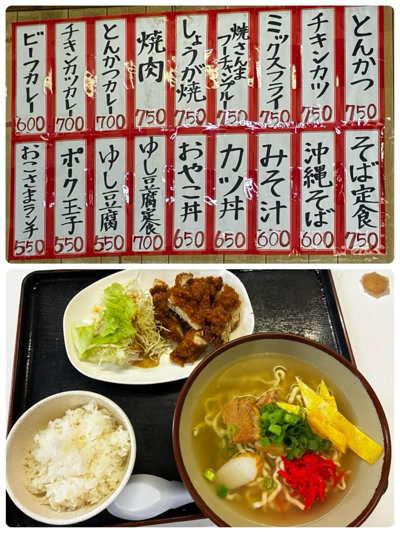 とんかつ 750
チキンカツ 750
ミックスフライ 750
焼さんま フーチャンプルー 750
しょうが焼 750
焼肉 750
とんかつカレー 700
チキンカツカレー 700
ビーフカレー 600
そば定食 750
沖縄そば 600
みそ汁 600
カツ丼 650
おやこ丼 650
ゆし豆腐定食 700
ゆし豆腐 550
ポーク玉子 550
おこさまランチ 550